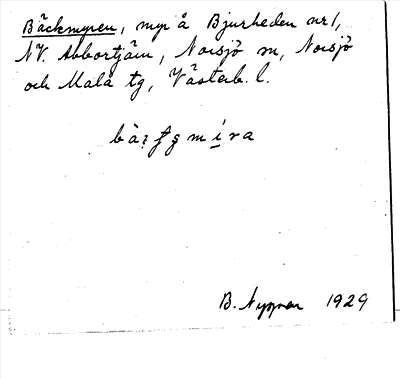 Bäckmyren, myr å Bjurheden nr 1,
NV. Abbortjärn, Norsjö sn, Norsjö
och Malå tg, Västerb. l.
B. Nygren 1929